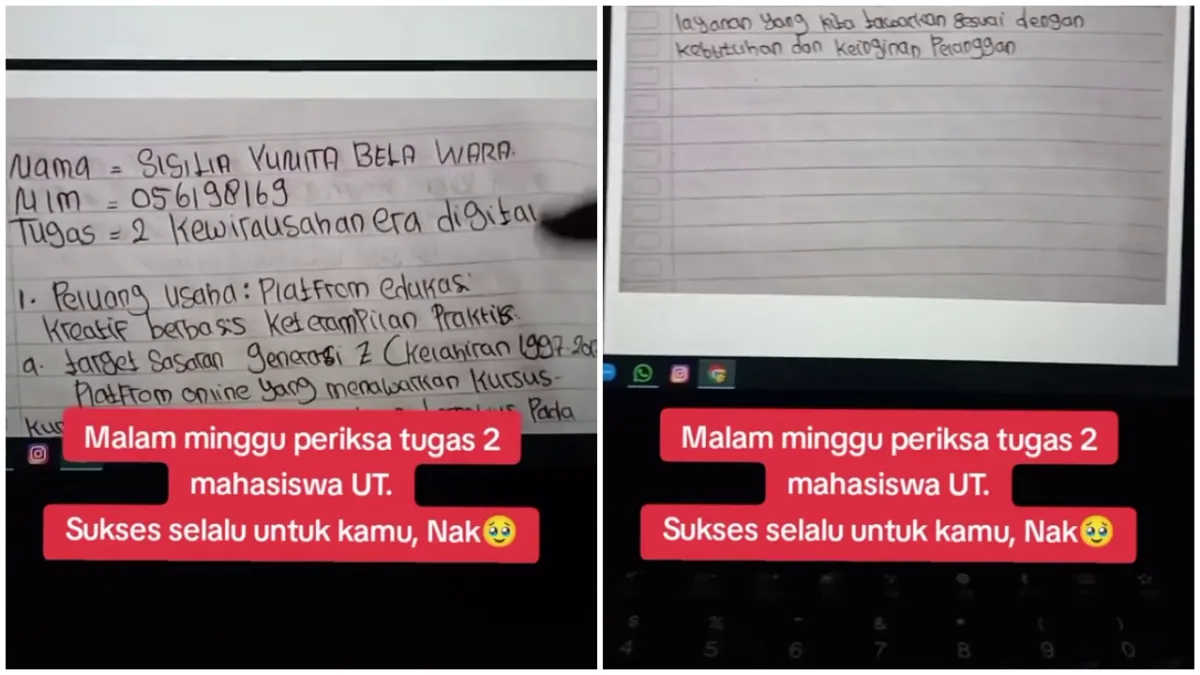 Nama = SISILIA YUNITA BELA WARA.
NIM = 056198169
Tugas = 2 Kewirausahan era digital
1. Peluang usaha: Platfrom edukasi
Kreatif berbasis Keterampilan Praktis.
a. target Sasaran generasi Z (Kelahiran 1997-20
Platfrom online yang menawarkan Kursus-
Kur
Pada
Malam minggu periksa tugas 2
mahasiswa UT.
Sukses selalu untuk kamu, Nak🥹
layanan yang kita tawarkan sesuai dengan
kebutuhan dan keinginan Pelanggan
Malam minggu periksa tugas 2
mahasiswa UT.
Sukses selalu untuk kamu, Nak🥹
$ % ^ & * ( )
4 5 6 7 8 9 0